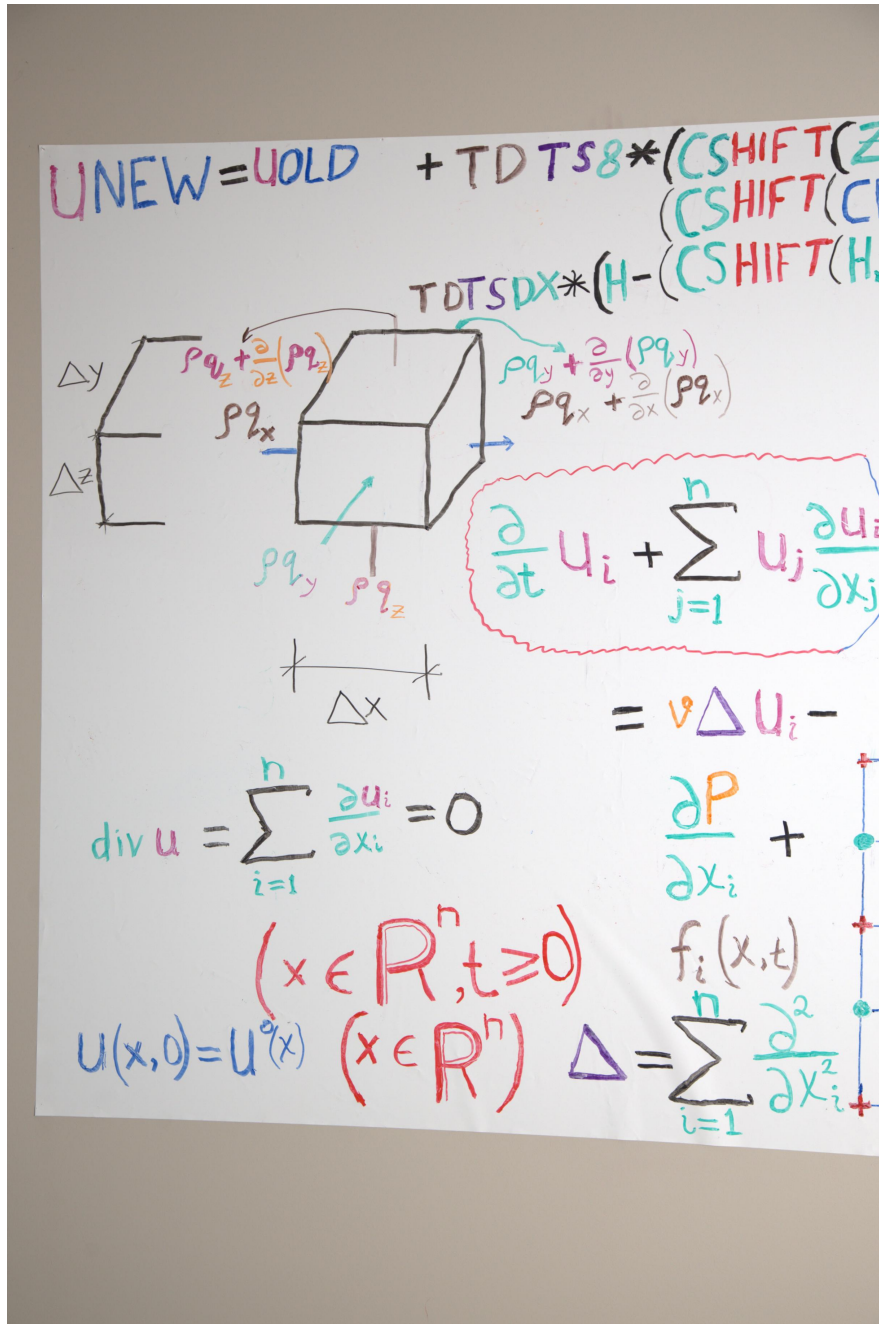 UNEW=UOLD + TDTS8*(CSHIFT(Z
(CSHIFT(C
TDTSDX*(H-(CSHIFT(H,
Δy
ρq_z + ∂/∂z(ρq_z)
ρq_y + ∂/∂y(ρq_y)
ρq_x
ρq_x + ∂/∂x(ρq_x)
Δz
ρq_y
ρq_z
Δx
∂/∂t u_i + ∑_{j=1}^{n} u_j ∂u_i/∂x_j
= νΔu_i −
div u = ∑_{i=1}^{n} ∂u_i/∂x_i = 0
∂P/∂x_i +
(x ∈ ℝ^n, t ≥ 0)
f_i(x,t)
u(x,0) = u°(x) (x ∈ ℝ^n)
Δ = ∑_{i=1}^{n} ∂²/∂x_i²